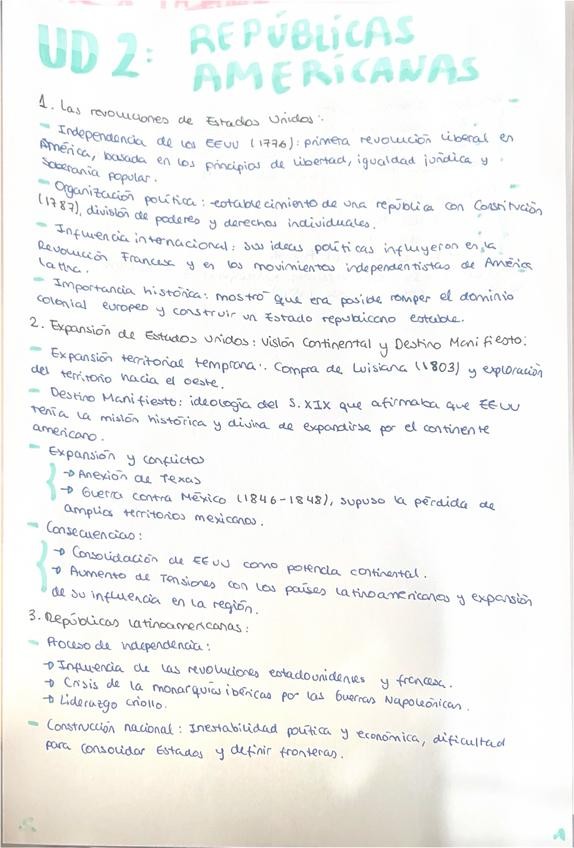 UD 2: REPÚBLICAS
AMERICANAS
1. Las revoluciones de Estados Unidos:
- Independencia de los EEUU (1776): primera revolución liberal en
América, basada en los principios de libertad, igualdad jurídica y
soberanía popular.
- Organización política: establecimiento de una república con Constitución
(1787), división de poderes y derechos individuales.
- Influencia internacional: sus ideas políticas influyeron en la
Revolución Francesa y en los movimientos independentistas de América
Latina.
- Importancia histórica: mostró que era posible romper el dominio
colonial europeo y construir un Estado republicano estable.
2. Expansión de Estados Unidos: Visión Continental y Destino Manifiesto:
- Expansión territorial temprana: Compra de Luisiana (1803) y exploración
del territorio hacia el oeste.
- Destino Manifiesto: ideología del S.XIX que afirmaba que EEUU
tenía la misión histórica y divina de expandirse por el continente
americano.
- Expansión y conflictos
→ Anexión de Texas
→ Guerra contra México (1846-1848), supuso la pérdida de
amplios territorios mexicanos.
- Consecuencias:
→ Consolidación de EEUU como potencia continental.
→ Aumento de tensiones con los países latinoamericanos y expansión
de su influencia en la región.
3. Repúblicas latinoamericanas:
- Proceso de independencia:
→ Influencia de las revoluciones estadounidenses y francesa.
→ Crisis de la monarquías ibéricas por las Guerras Napoleónicas.
→ Liderazgo criollo.
- Construcción nacional: Inestabilidad política y económica, dificultad
para consolidar Estados y definir fronteras.